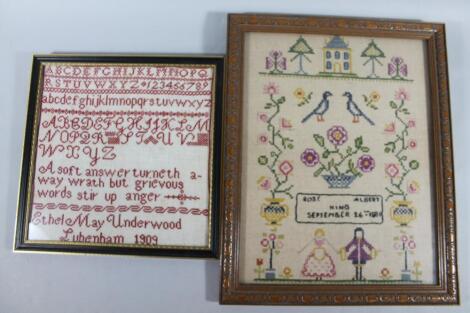 ABCDEFGHIJKLMNOPQ
RSTUVWXYZ
abcdefghijklmnopqrstuvwxyz
ABCDEFGHIJKLM
NOPQR ST U V
WXYZ
A soft answer turneth a-
way wrath but grievous
words stir up anger
Ethel May Underwood
Lubenham 1909
ALBERT
KING
SEPTEMBER 26